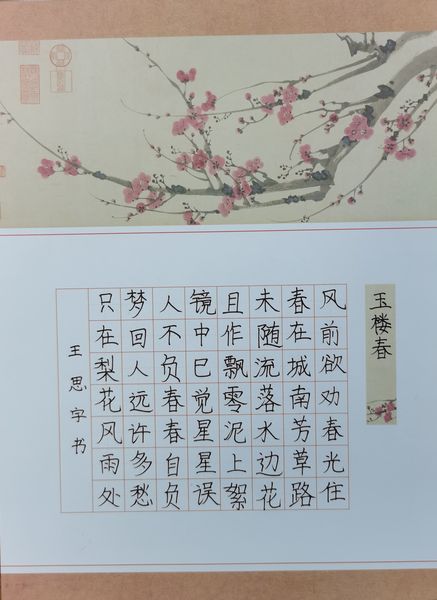 玉楼春
风前欲劝春光住
春在城南芳草路
未随流落水边花
且作飘零泥上絮
镜中已觉星星误
人不负春春自负
梦回人远许多愁
只在梨花风雨处
王思字书